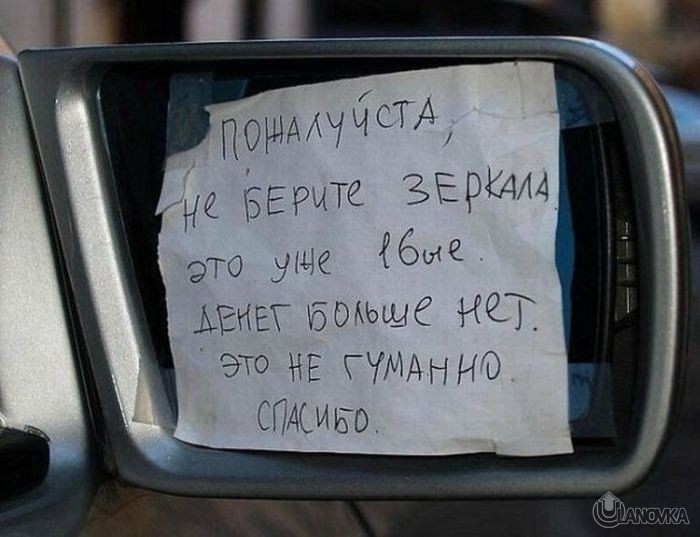 ПОЖАЛУЙСТА,
НЕ БЕРИТЕ ЗЕРКАЛА
ЭТО УЖЕ 16ые.
ДЕНЕГ БОЛЬШЕ НЕТ.
ЭТО НЕ ГУМАННО
СПАСИБО.
ULANOVKA